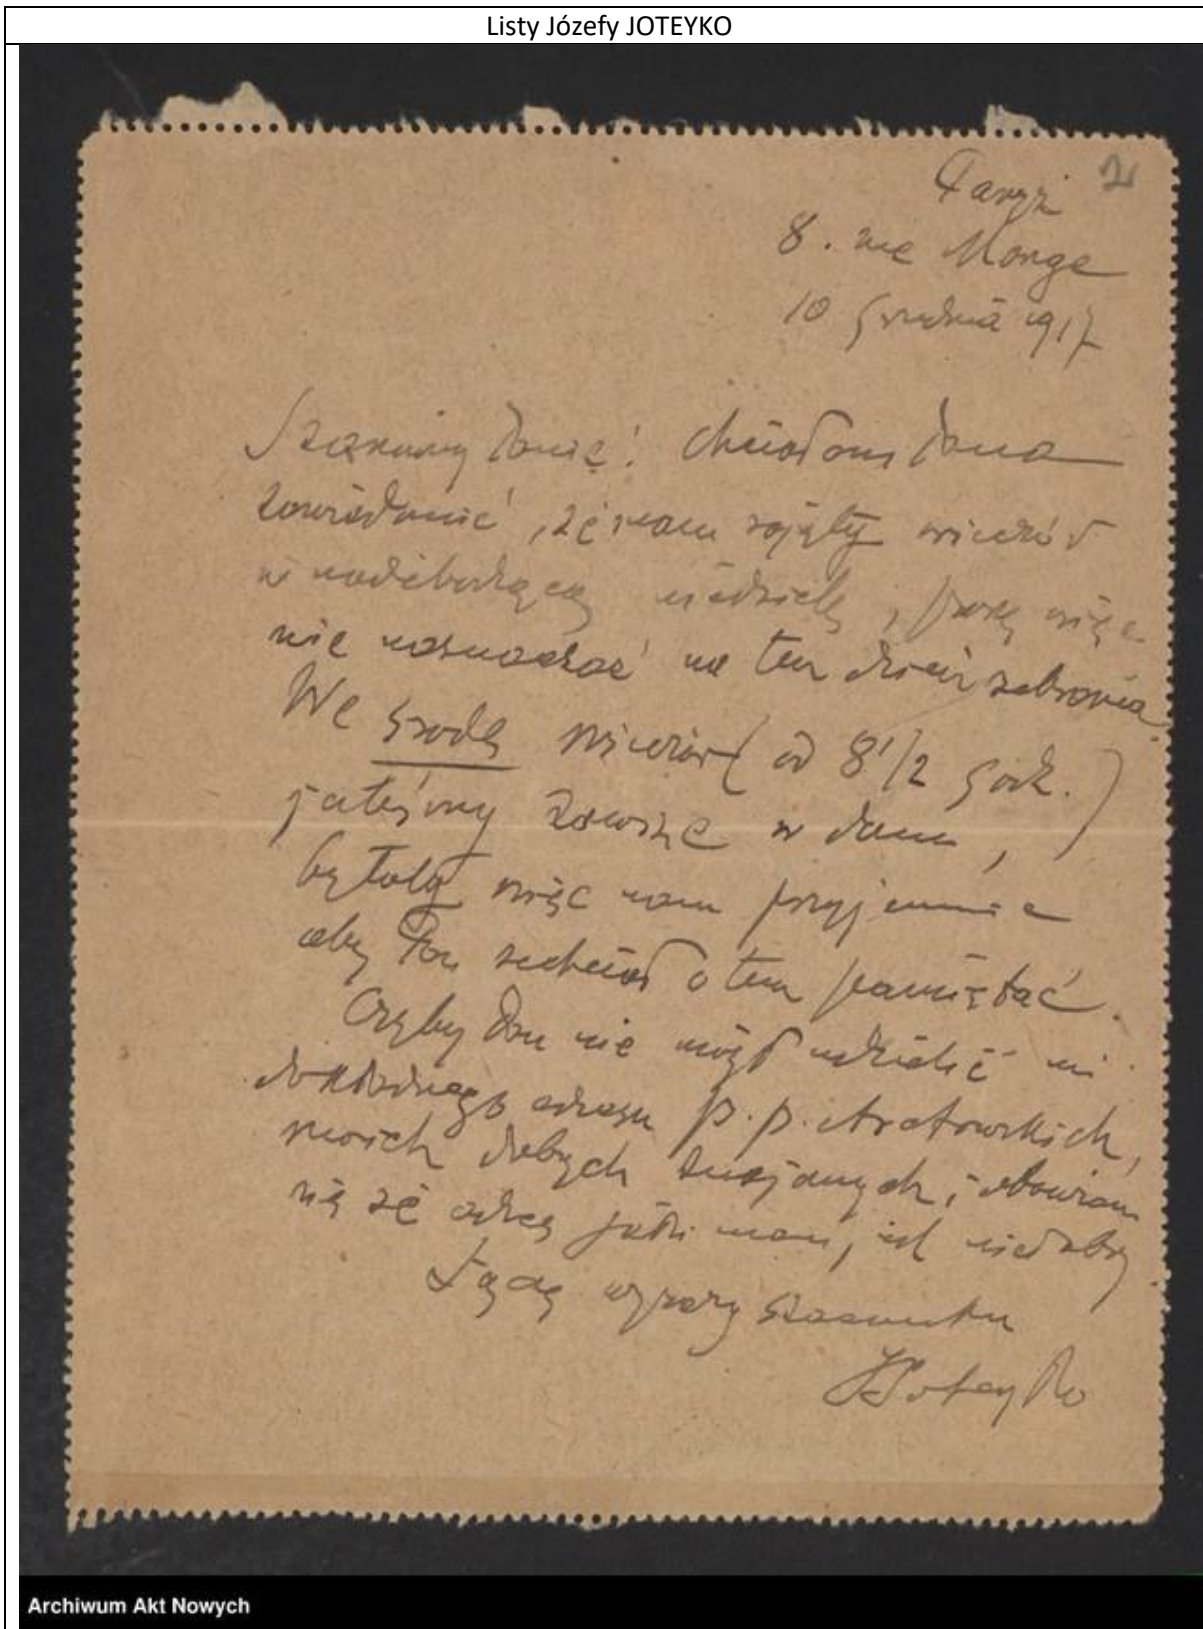 Listy Józefy JOTEYKO
2
Paryż
8. rue Monge
10 grudnia 1917
Szanowny Panie! Chciałam Pana
zawiadomić, że mam zajęty wieczór
w nadchodzącą niedzielę, proszę więc
nie naznaczać na ten dzień zebrania.
We środę wieczór (od 8 1/2 godz.)
jesteśmy zawsze w domu,
byłoby więc nam przyjemnie
aby Pan zechciał o tem pamiętać.
Czyby Pan nie mógł udzielić mi
dokładnego adresu p.p. Arctowskich,
moich dobrych znajomych, obawiam
się że adres jaki mam, jest niedobry.
Łączę wyrazy szacunku
JJoteyko
Archiwum Akt Nowych